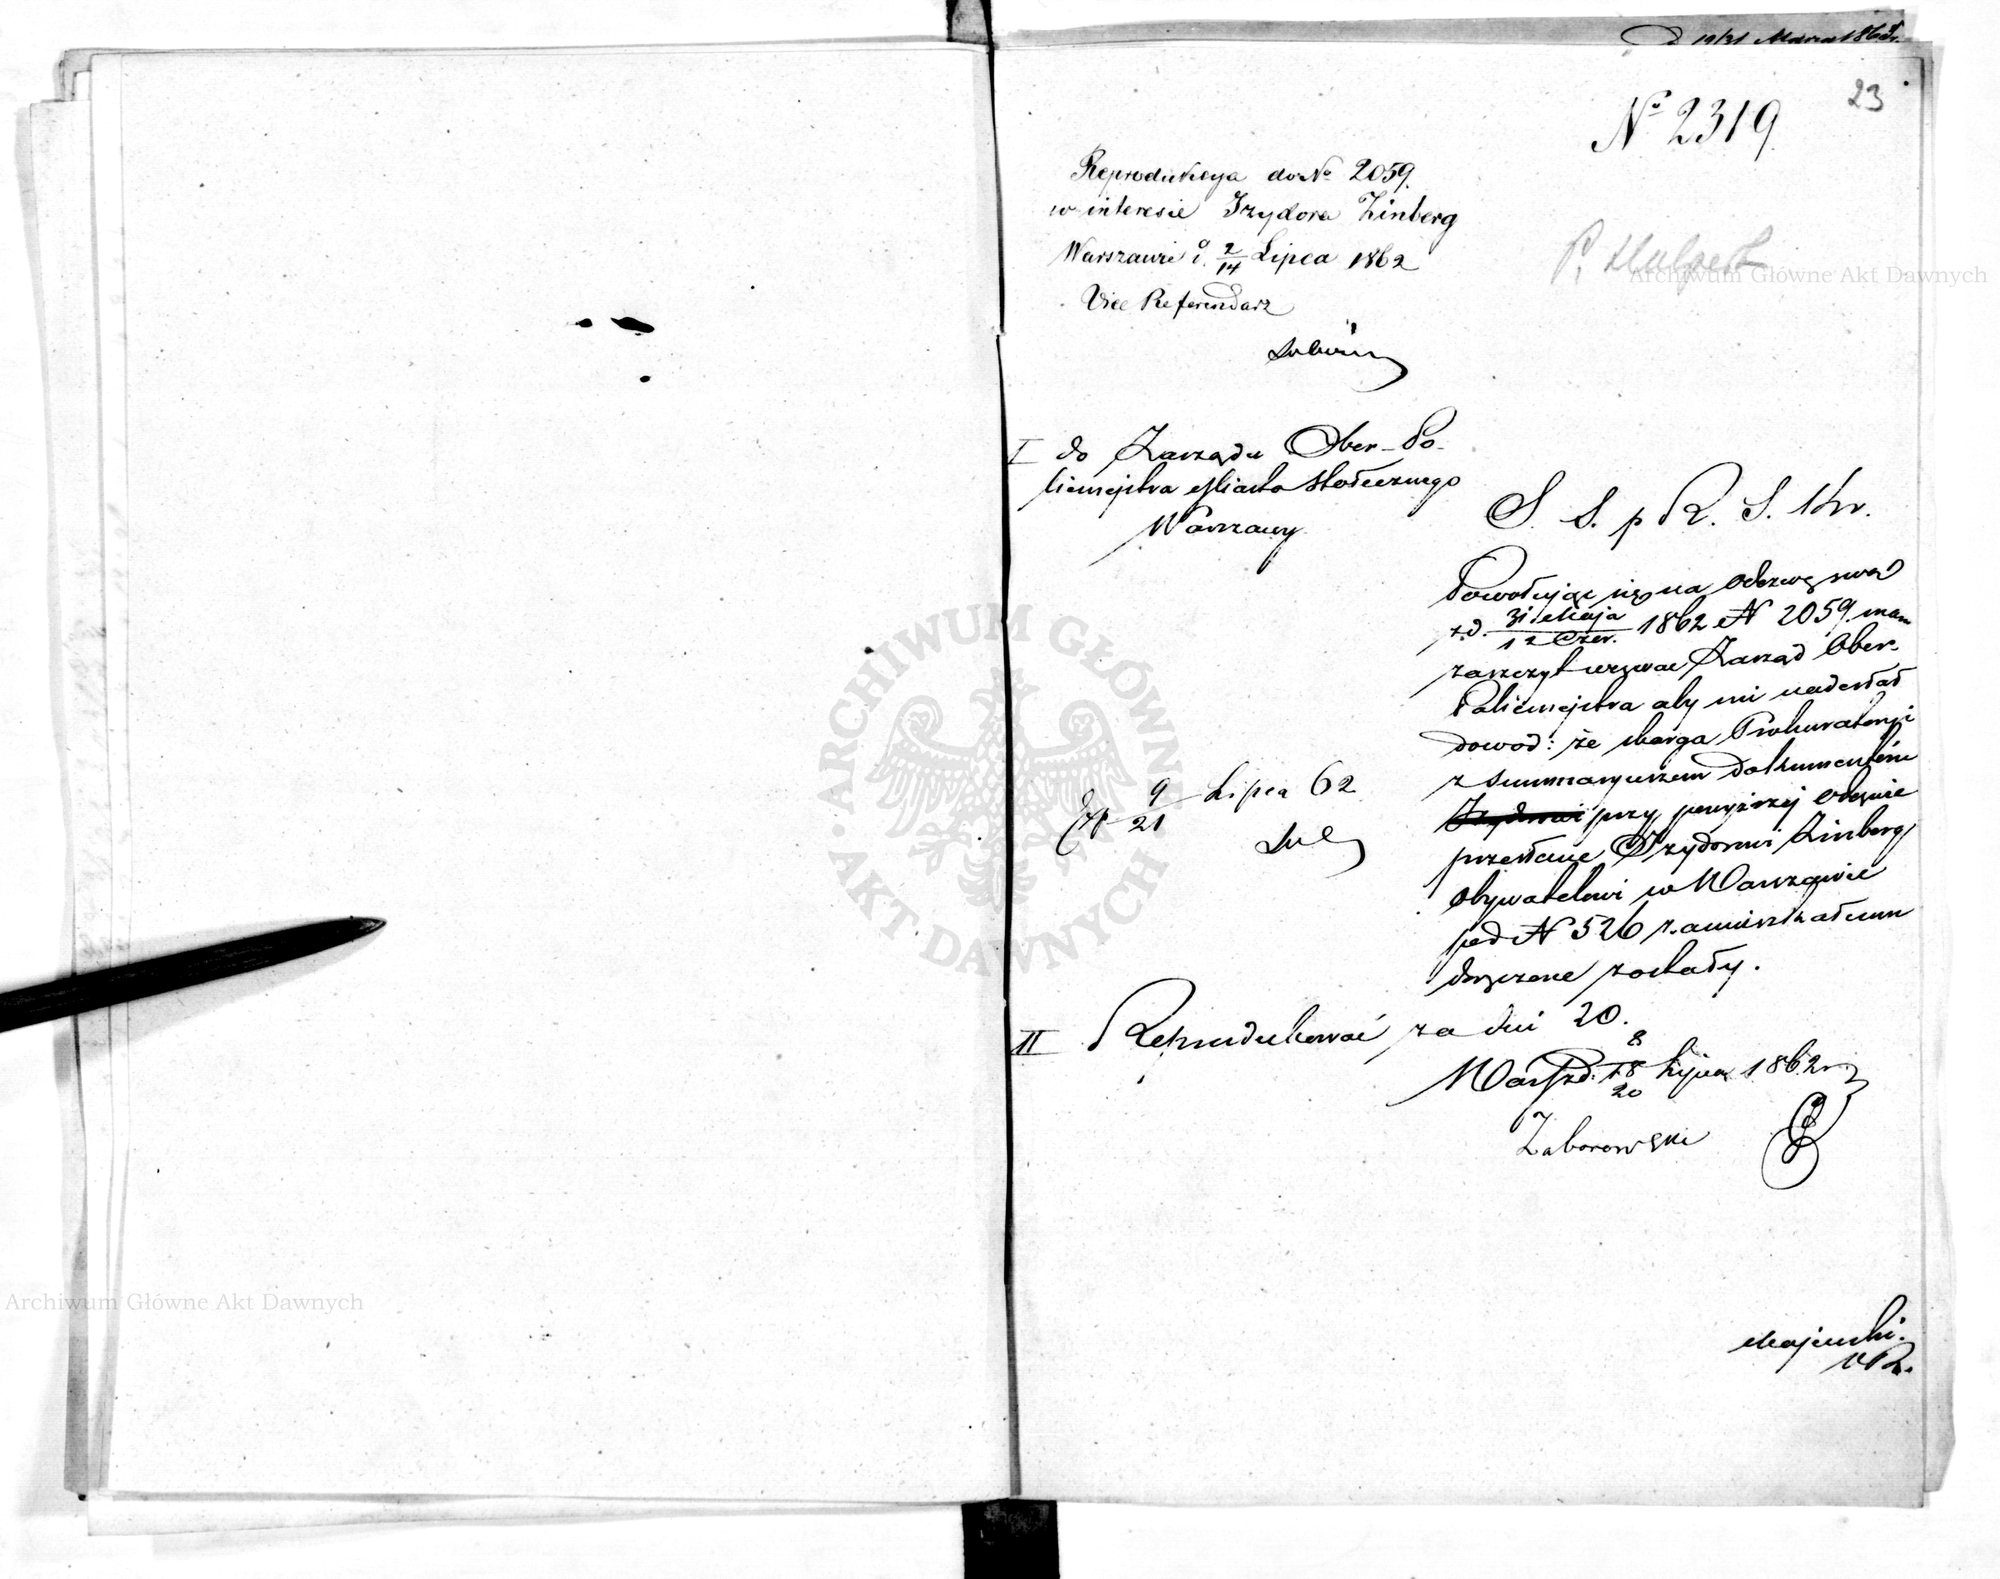 d 19/31 Marca 186
23
Nº 2319
Reprodukcya do Nº 2059.
w interesie Izydora Zinberg
Warszawie d. 2/14 Lipca 1862
Vice Referendarz
P.
I do Zarządu Ober-Po-
licmejstra Miasta Stołecznego
Warszawy
S. S. p R. S. Kr.
Powołując się na odezwę swą
z d. 31 Maja/12 Czer. 1862 N 2059 mam
zaszczyt wezwać Zarząd Ober-
Policmejstra aby mi nadesłał
dowod: że skarga Prokuratoryi
z summaryuszem dokumentów
Izydorowi przy powyższej odezwie
przesłane Izydorowi Zinberg
obywatelowi w Warszawie
pod N 526 zamieszkałemu
doręczone zostały.
Ex 9/21 Lipca 62
II Reprodukować za dni 20.
Warsz d. 8/20 Lipca 1862 r
Zaborowski
Majewski.
VR.
ARCHIWUM GŁÓWNE AKT DAWNYCH
Archiwum Główne Akt Dawnych
Archiwum Główne Akt Dawnych